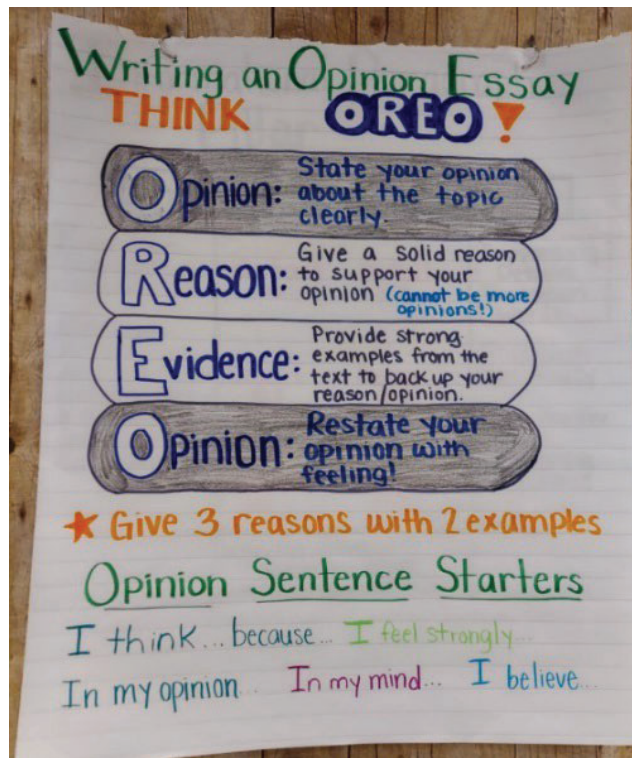 Writing an Opinion Essay
THINK OREO!
Opinion: State your opinion
about the topic
clearly.
Reason: Give a solid reason
to support your
opinion (cannot be more
opinions!)
Evidence: Provide strong
examples from the
text to back up your
reason/opinion.
Opinion: Restate your
opinion with
feeling!
★ Give 3 reasons with 2 examples
Opinion Sentence Starters
I think... because... I feel strongly...
In my opinion... In my mind... I believe...